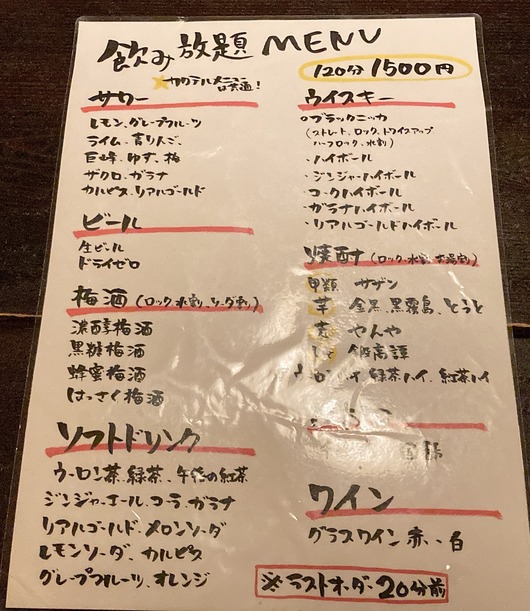 飲み放題 MENU
カクテルメニューは共通!
120分 1500円
サワー
レモン、グレープフルーツ
ライム、青りんご、
巨峰、ゆず、梅
ザクロ、ガラナ
カルピス、リアルゴールド
ビール
生ビール
ドライゼロ
梅酒 (ロック、水割、ソーダ割)
濃醇梅酒
黒糖梅酒
蜂蜜梅酒
はっさく梅酒
ソフトドリンク
ウーロン茶、緑茶、午後の紅茶
ジンジャーエール、コーラ、ガラナ
リアルゴールド、メロンソーダ
レモンソーダ、カルピス
グレープフルーツ、オレンジ
ウイスキー
○ブラックニッカ
(ストレート、ロック、トワイスアップ
ハーフロック、水割)
・ハイボール
・ジンジャーハイボール
・コークハイボール
・ガラナハイボール
・リアルゴールドハイボール
焼酎 (ロック、水割、お湯割)
甲類 サザン
芋 金黒、黒霧島、とうと
やんや
ハイ、緑茶ハイ、紅茶ハイ
ワイン
グラスワイン 赤、白
※ラストオーダー20分前